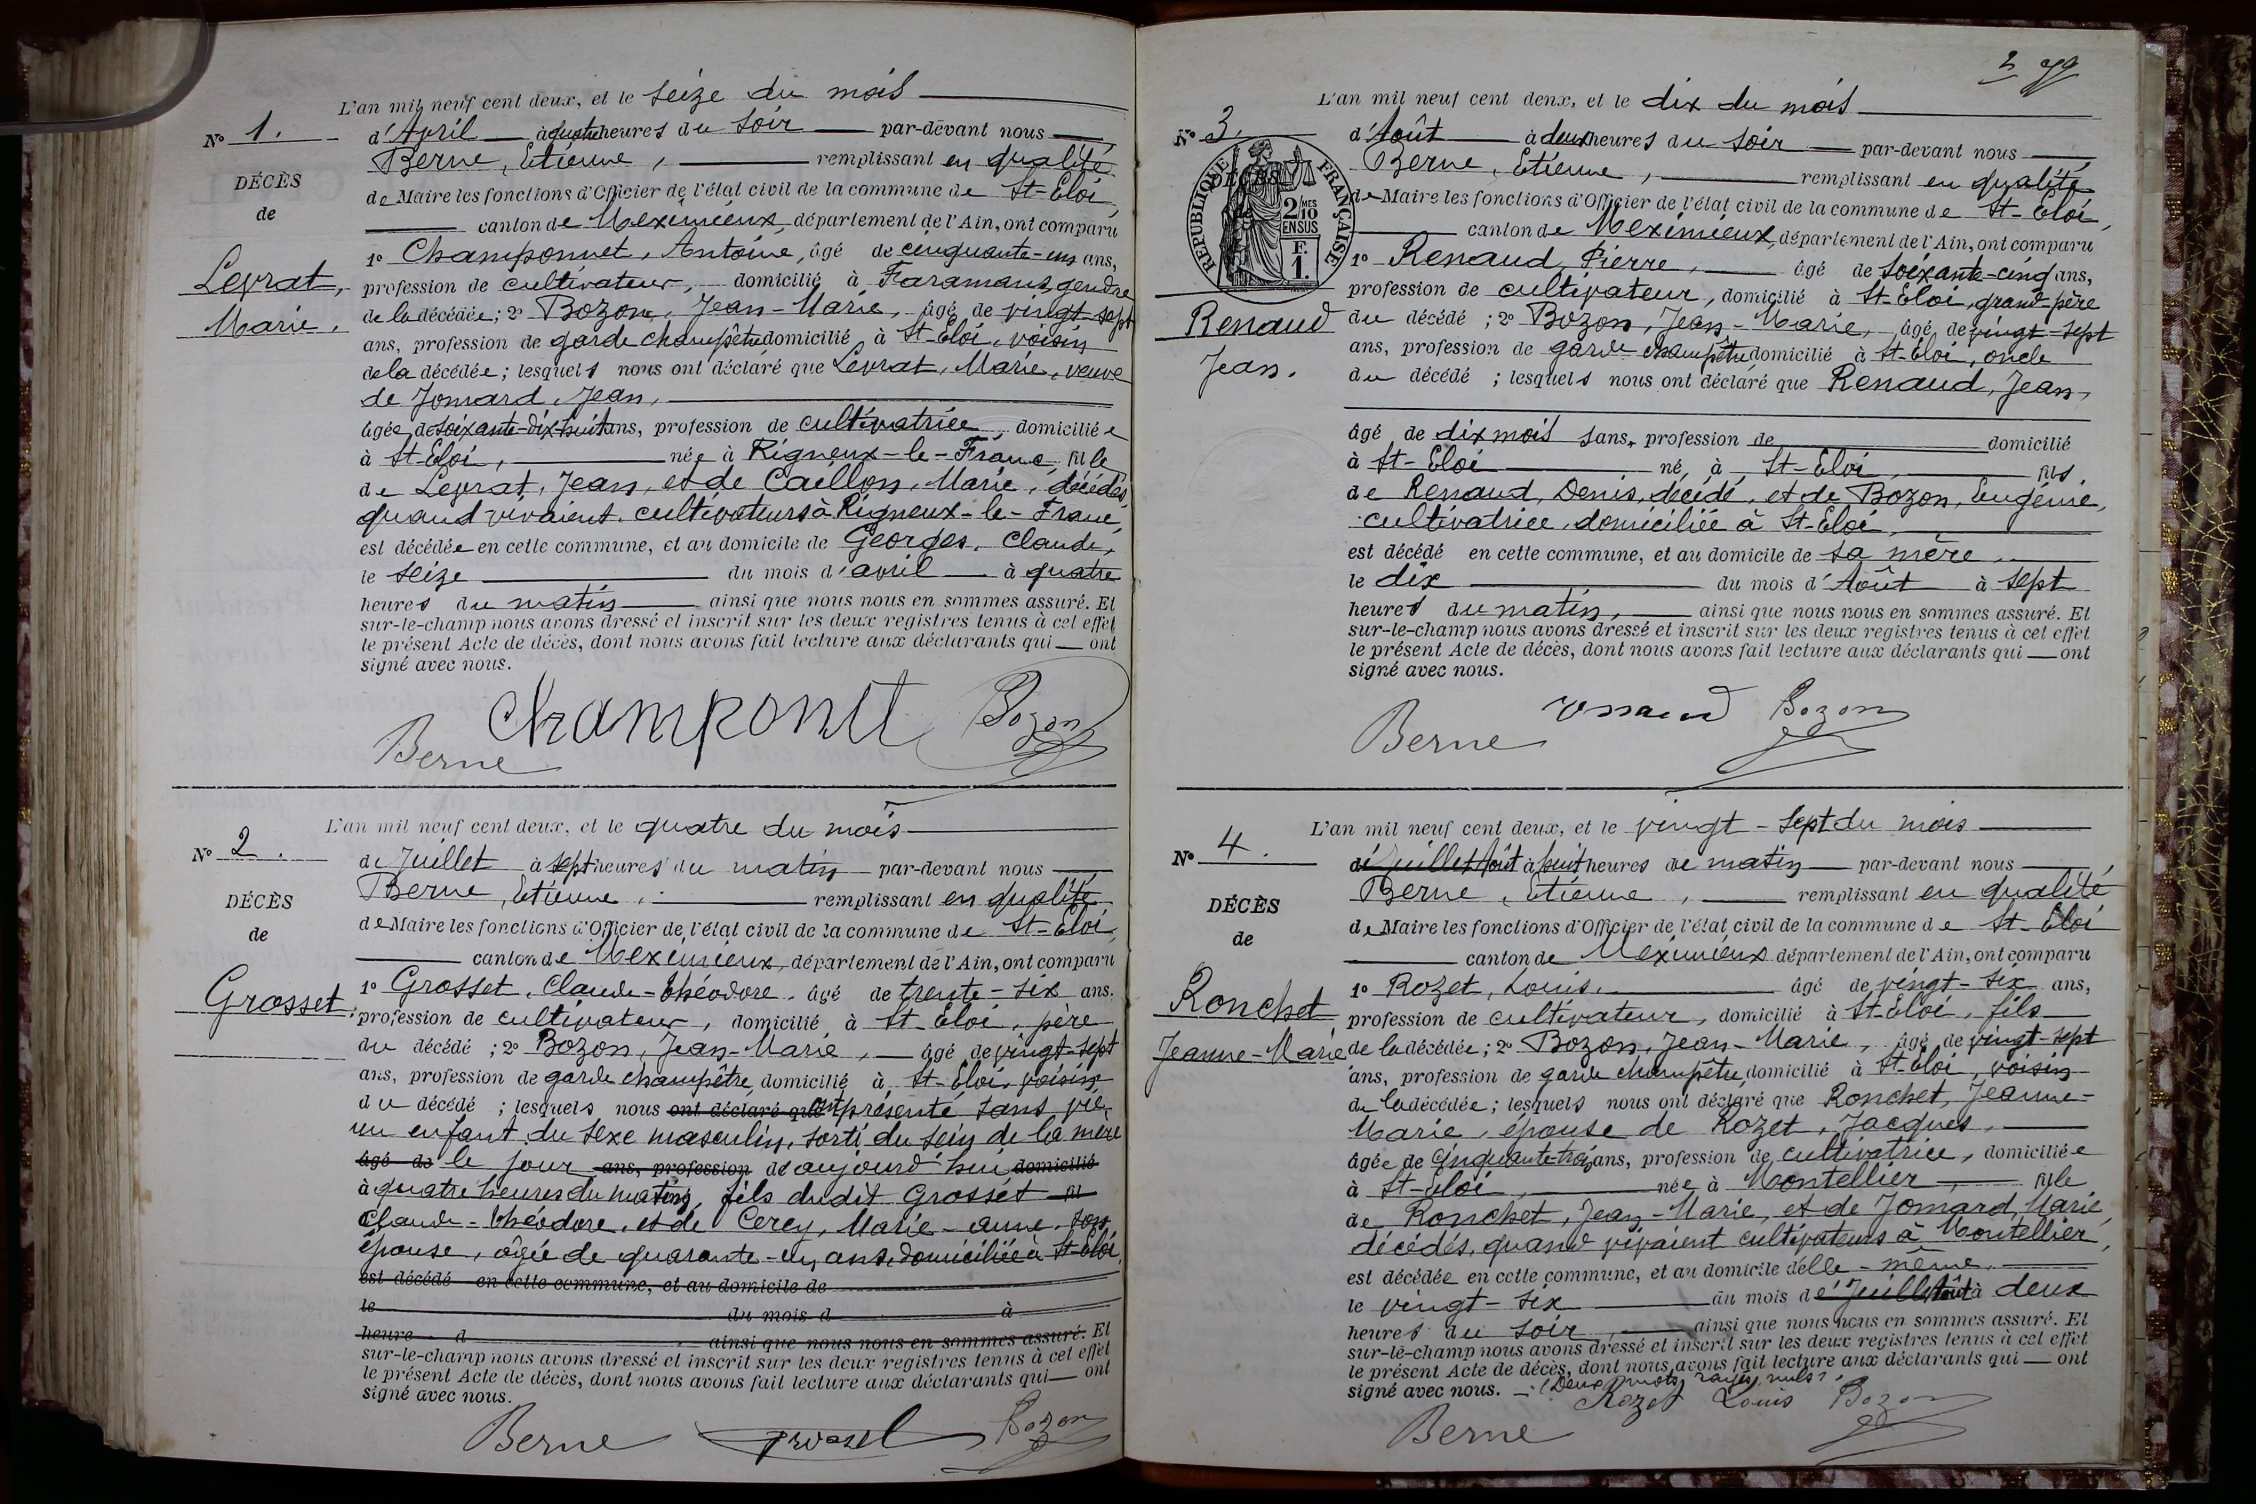 L'an mil neuf cent deux, et le seize du mois
No 1.
d'April à quatre heures du soir par-devant nous
Berne, Etienne, remplissant en qualité
DÉCÈS
de Maire les fonctions d'Officier de l'état civil de la commune de St-Eloi,
de
canton de Meximieux, département de l'Ain, ont comparu
1o Champonnet, Antoine, âgé de cinquante-un ans,
Levrat,
profession de cultivateur, domicilié à Faramans, gendre
Marie.
de la décédée; 2o Bozon, Jean-Marie, âgé de vingt-sept
ans, profession de garde champêtre domicilié à St-Eloi, voisin
de la décédée; lesquels nous ont déclaré que Levrat, Marie, veuve
de Jomard, Jean,
âgée de soixante-dix-huit ans, profession de cultivatrice, domiciliée
à St-Eloi, née à Rigneux-le-Franc, fille
de Levrat, Jean, et de Caillon, Marie, décédés
quand vivaient cultivateurs à Rigneux-le-Franc,
est décédée en cette commune, et au domicile de Georges, Claude,
le seize du mois d'avril à quatre
heures du matin ainsi que nous nous en sommes assuré. Et
sur-le-champ nous avons dressé et inscrit sur les deux registres tenus à cet effet
le présent Acte de décès, dont nous avons fait lecture aux déclarants qui ont
signé avec nous.
Champonet Bozon
Berne
L'an mil neuf cent deux, et le quatre du mois
No 2.
de Juillet à sept heures du matin par-devant nous
Berne, Etienne, remplissant en qualité
DÉCÈS
de Maire les fonctions d'Officier de l'état civil de la commune de St-Eloi,
de
canton de Meximieux, département de l'Ain, ont comparu
Grosset.
1o Grosset, Claude-Théodore, âgé de trente-six ans,
profession de cultivateur, domicilié à St-Eloi, père
du décédé; 2o Bozon, Jean-Marie, âgé de vingt-sept
ans, profession de garde champêtre, domicilié à St-Eloi, voisin
du décédé; lesquels nous ont déclaré que ont présenté sans vie,
un enfant du sexe masculin, sorti du sein de la mère
âgé de le jour ans, profession d'aujourd'hui domicilié
à quatre heures du matin, fils dudit Grosset fil
Claude-Théodore, et de Cerey, Marie-Anne, son
épouse, âgée de quarante-un ans, domiciliée à St-Eloi.
est décédé en cette commune, et au domicile de
le du mois d à
heure d ainsi que nous nous en sommes assuré. Et
sur-le-champ nous avons dressé et inscrit sur les deux registres tenus à cet effet
le présent Acte de décès, dont nous avons fait lecture aux déclarants qui ont
signé avec nous.
Berne Grosset Bozon
L'an mil neuf cent deux, et le dix du mois
No 3.
d'Août à deux heures du soir par-devant nous
Berne, Etienne, remplissant en qualité
RÉPUBLIQUE FRANÇAISE
2 MES
10
EN SUS
F.
1.
de Maire les fonctions d'Officier de l'état civil de la commune de St-Eloi,
canton de Meximieux, département de l'Ain, ont comparu
1o Renaud, Pierre, âgé de soixante-cinq ans,
profession de cultivateur, domicilié à St-Eloi, grand-père
Renaud
Jean.
du décédé; 2o Bozon, Jean-Marie, âgé de vingt-sept
ans, profession de garde champêtre domicilié à St-Eloi, oncle
du décédé; lesquels nous ont déclaré que Renaud, Jean,
âgé de dix mois sans, profession de domicilié
à St-Eloi né à St-Eloi fils
de Renaud, Denis, décédé, et de Bozon, Eugénie,
cultivatrice, domiciliée à St-Eloi,
est décédé en cette commune, et au domicile de sa mère,
le dix du mois d'Août à sept
heures du matin, ainsi que nous nous en sommes assuré. Et
sur-le-champ nous avons dressé et inscrit sur les deux registres tenus à cet effet
le présent Acte de décès, dont nous avons fait lecture aux déclarants qui ont
signé avec nous.
Bozon
Berne
L'an mil neuf cent deux, et le vingt-sept du mois
No 4.
de Juillet Août à huit heures de matin par-devant nous
Berne, Etienne, remplissant en qualité
DÉCÈS
de Maire les fonctions d'Officier de l'état civil de la commune de St-Eloi
de
canton de Meximieux département de l'Ain, ont comparu
Ronchet
Jeanne-Marie
1o Rozet, Louis, âgé de vingt-six ans,
profession de cultivateur, domicilié à St-Eloi, fils
de la décédée; 2o Bozon, Jean-Marie, âgé de vingt-sept
ans, profession de garde champêtre, domicilié à St-Eloi, voisin
de la décédée; lesquels nous ont déclaré que Ronchet, Jeanne-
Marie, épouse de Rozet, Jacques,
âgée de cinquante-trois ans, profession de cultivatrice, domiciliée
à St-Eloi, née à Montellier, fille
de Ronchet, Jean-Marie, et de Jomard, Marie,
décédés, quand vivaient cultivateurs à Montellier,
est décédée en cette commune, et au domicile d'elle-même,
le vingt-six du mois de Juillet Août à deux
heures du soir, ainsi que nous nous en sommes assuré. Et
sur-le-champ nous avons dressé et inscrit sur les deux registres tenus à cet effet
le présent Acte de décès, dont nous avons fait lecture aux déclarants qui ont
signé avec nous. (Deux mots rayés nuls).
Rozet Louis Bozon
Berne